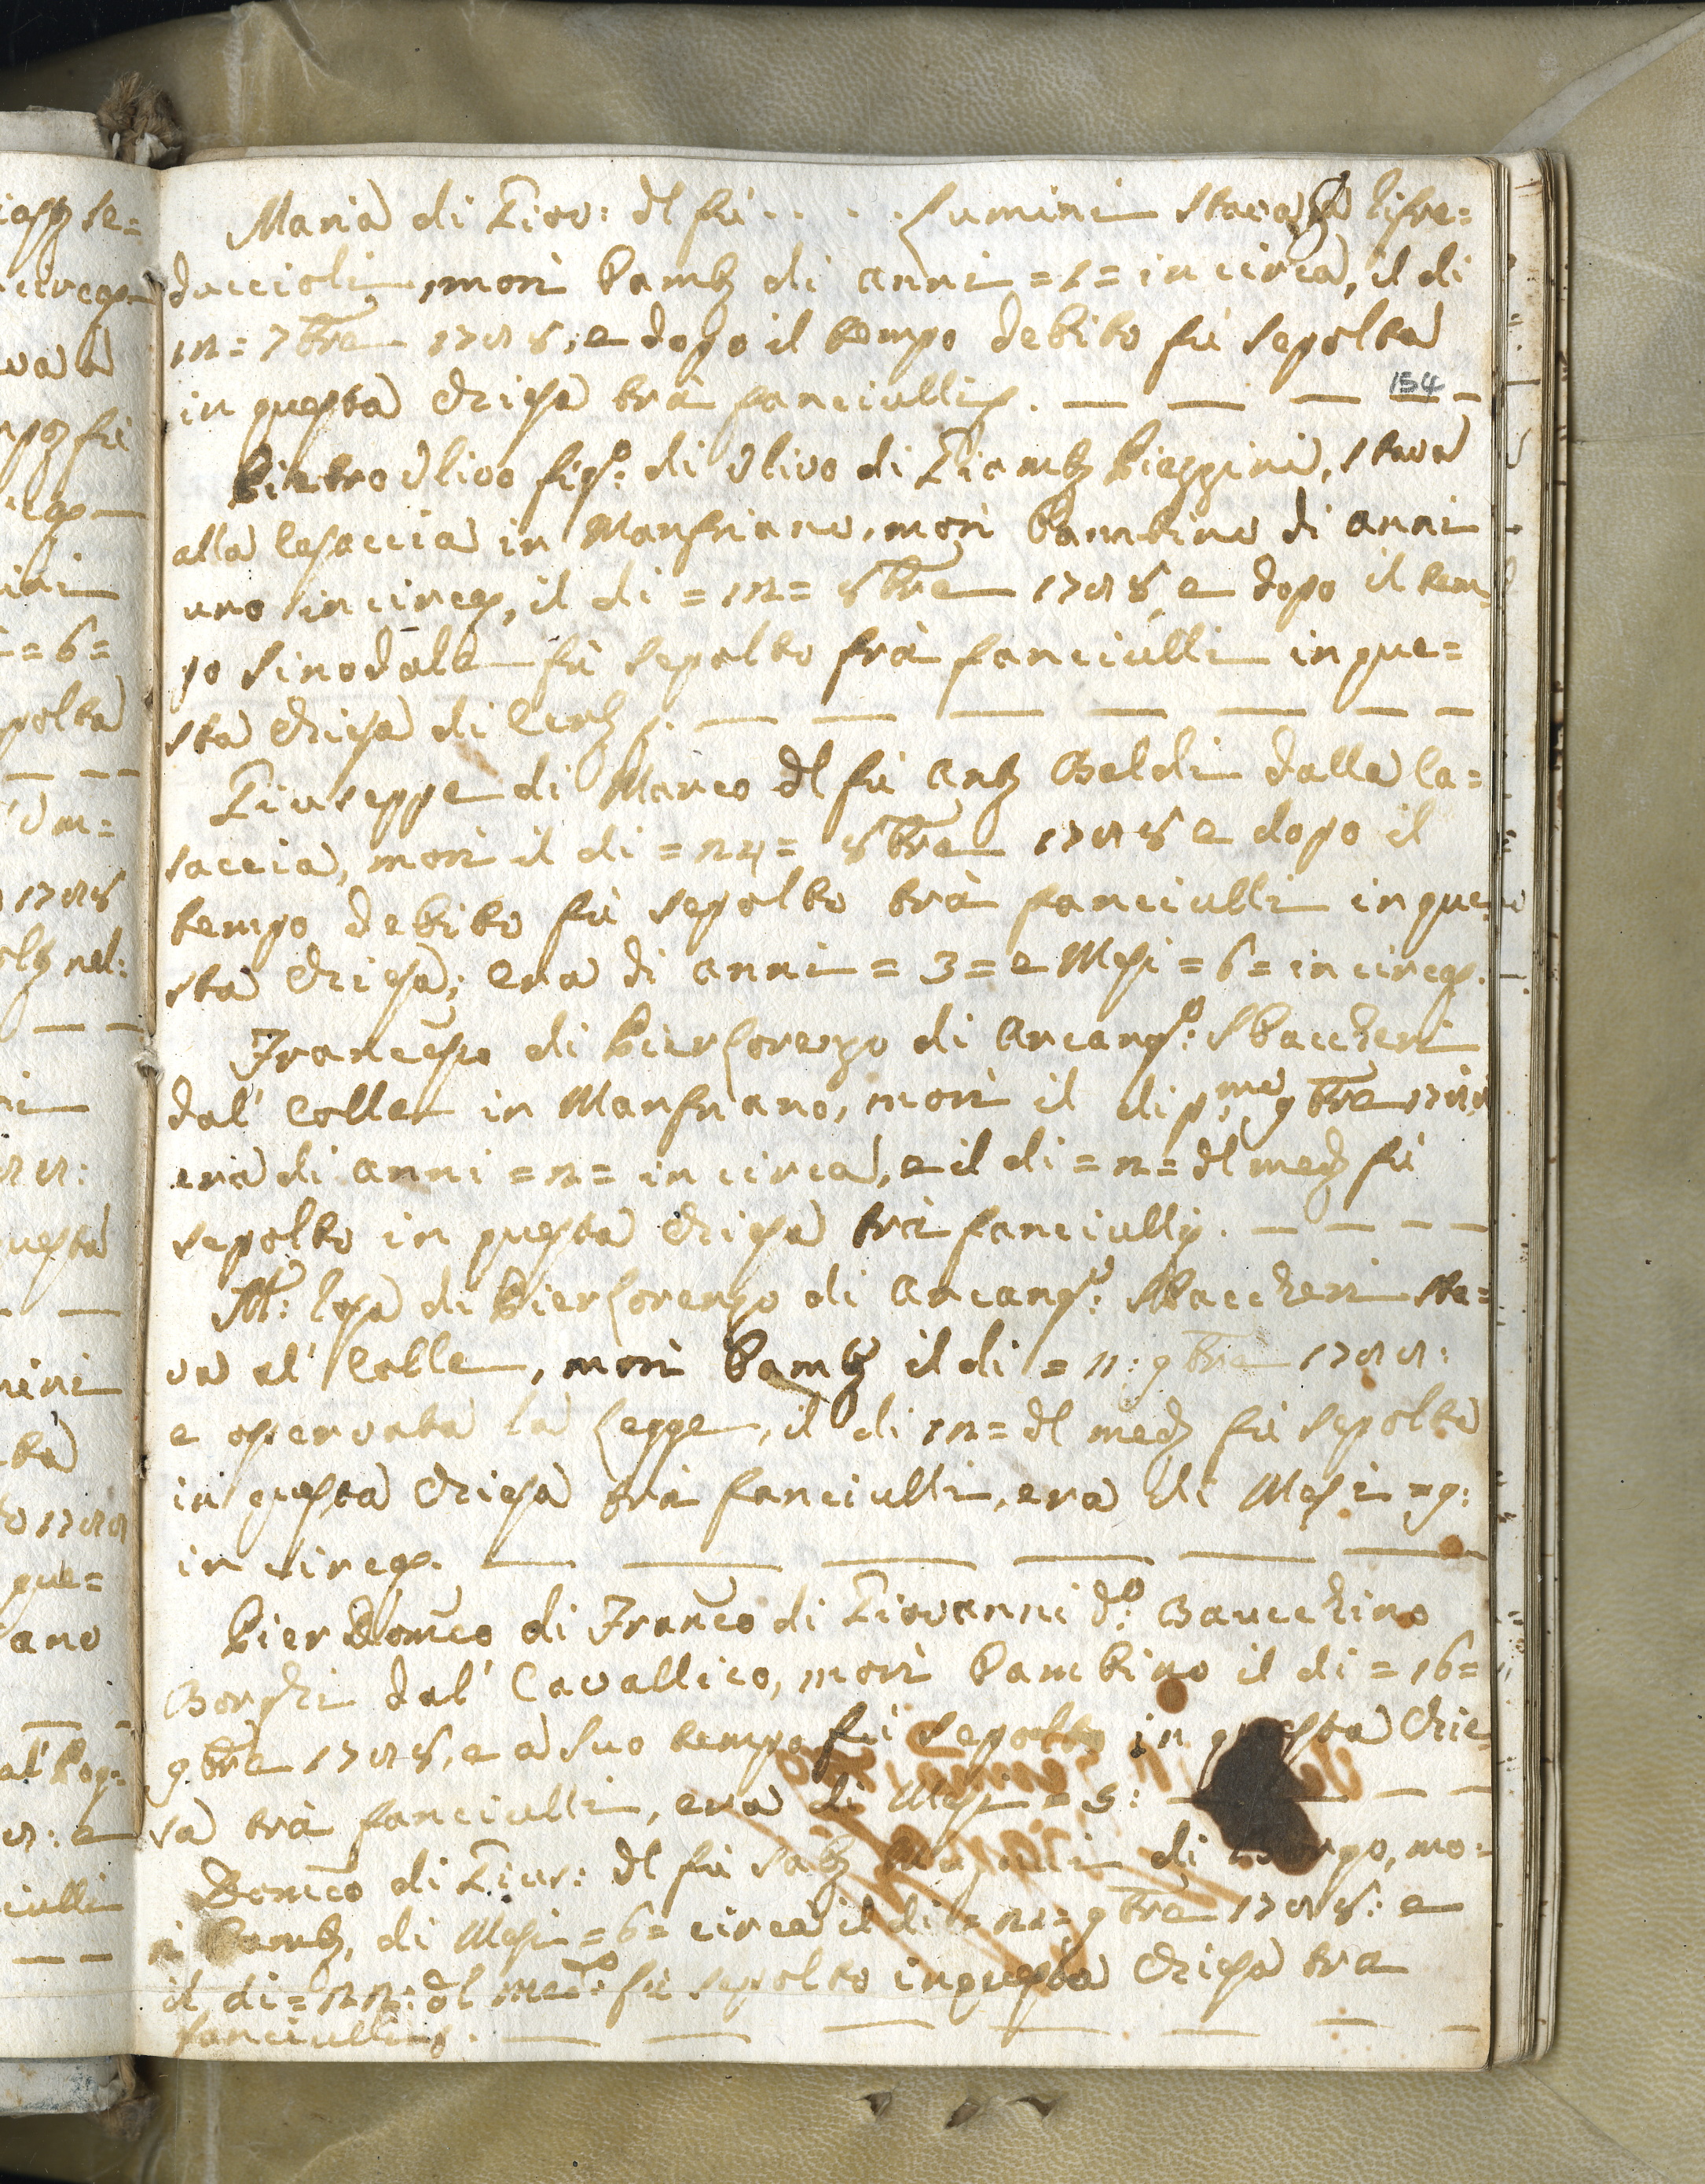 Maria di Giov: dl fù . . . . Lumini stava a Cifre=
duccioli, morì bamb di anni =1= in circa, il di
12= 7bre 1758, e dopo il tempo debito fù sepolta
in questa chiesa trà fanciulli. — — — —
154
Pietro Ulivo figo: di Ulivo di Giamb Piezzini, stava
alla Casaccia in Manfriano, morì bambino di anni
uno in circa, il di =12= 8bre 1758, e dopo il tem=
po sinodale fù sepolto frà fanciulli in que=
sta chiesa di Cerb. — — — — — — —
Giuseppe di Marco dl fù Ant Baldi dalla Ca=
saccia, morì il di =24= 8bre 1758 e dopo il
tempo debito fù sepolto trà fanciulli in que=
sta chiesa; era di anni =3= e Mesi =6= in circa.
Francesco di Pier Lorenzo di Arcango: Sbaccheri
dal' Colle in Manfriano, morì il di pmo 9bre
era di anni =2= in circa, e il di =2= dl med fù
sepolto in questa chiesa trà fanciulli. — — — —
M: Losa di Pier Lorenzo di Arcango: Sbaccheri sta=
va al' Colle, morì bamb il di =11: 9bre 1755:
e osservata la Legge, il di 12= dl med fù sepolta
in questa chiesa trà fanciulli, era di Mesi =9:
in circa. — — — — — —
Pier Domco di Franco di Giovanni do: Baucchino
Borghi dal' Cavallico, morì bambino il di =16=
9bre 1758, e a suo tempo fù sepolto in questa chie=
sa trà fanciulli, era di Mesi =3: — — —
Domco di Gius: dl fù Sab di mo=
rì bamb, di Mesi =6= circa il di =21= 9bre 1758: e
il di =22: dl medo: fù sepolto in questa chiesa tra
fanciulli. — — — — — — —